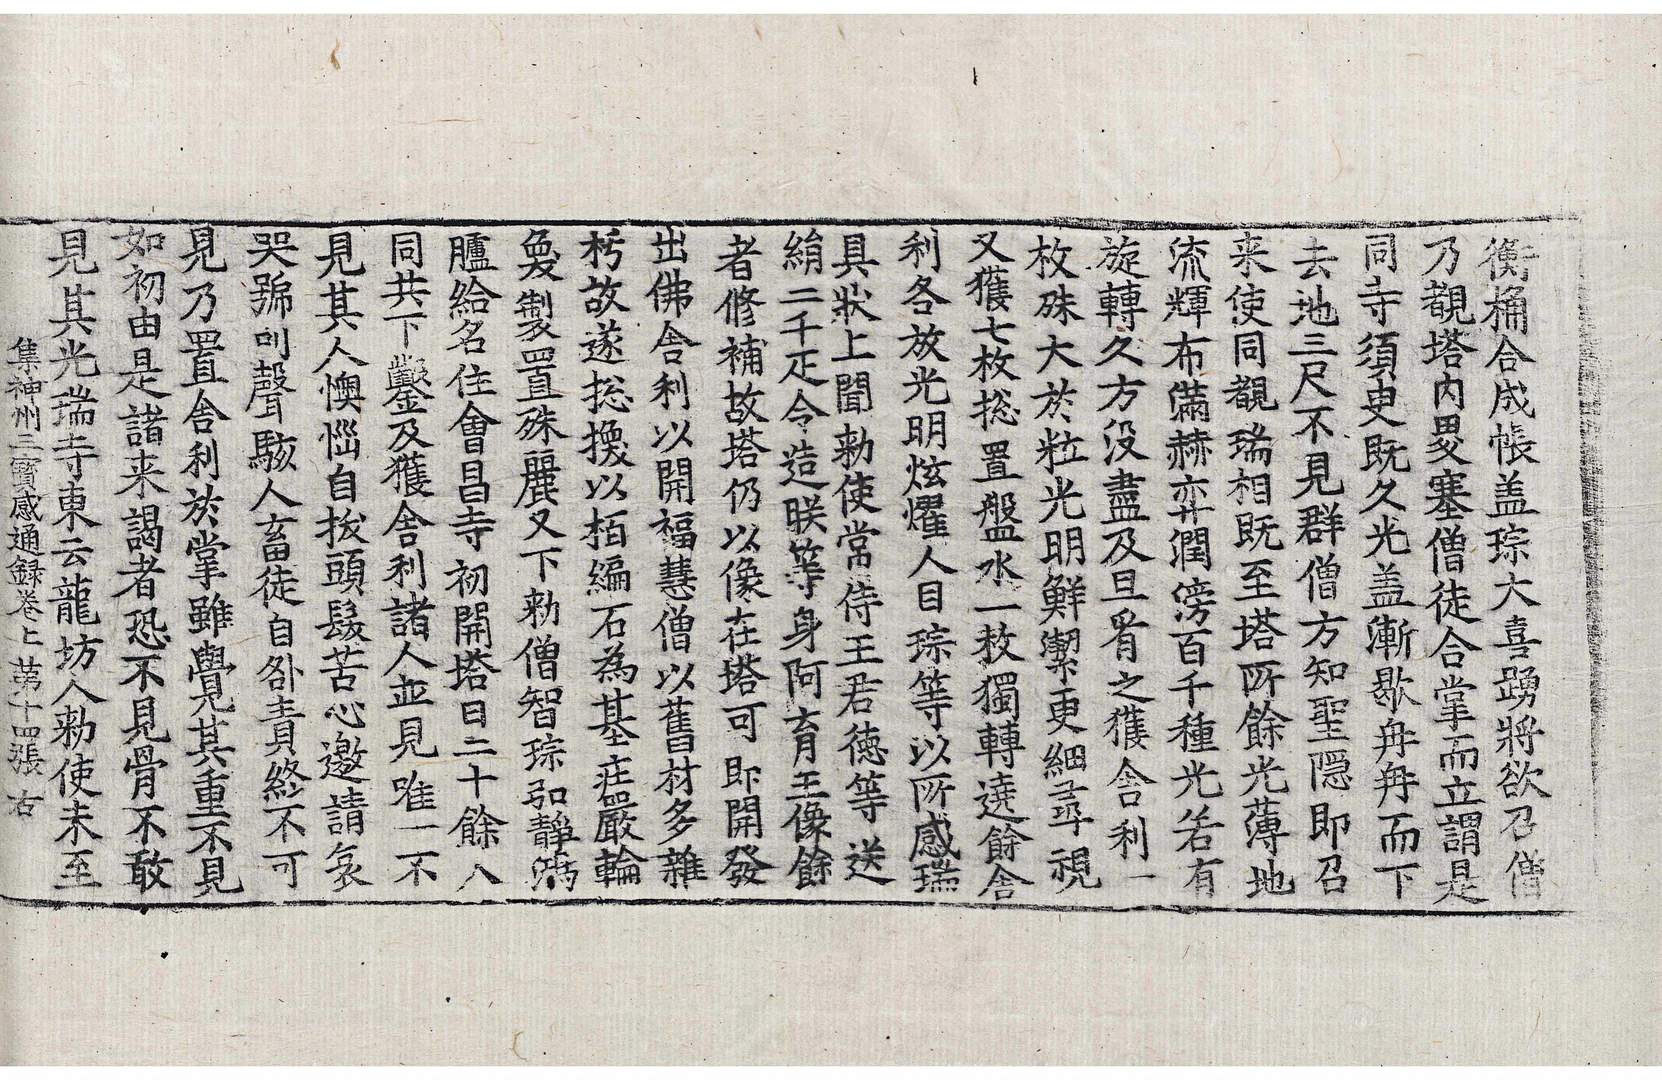 衡桶合成帳盖琮大喜踴將欲召僧
乃覩塔内畟塞僧徒合掌而立謂是
同寺須臾既久光盖漸歇冉冉而下
去地三尺不見群僧方知聖隱即召
来使同覩瑞相既至塔所餘光薄地
流輝布滿赫弈潤滂百千種光若有
旋轉久方没盡及旦看之獲舍利一
枚殊大於粒光明鮮潔更細尋視
又獲七枚揔置盤水一枚獨轉遶餘舍
利各放光明炫燿人目琮等以所感瑞
具狀上聞勑使常侍王君德等送
絹二千疋令造朕等身阿育王像餘
者修補故塔仍以像在塔可即開發
出佛舍利以開福慧僧以舊材多雜
朽故遂揔換以栢編石為基莊嚴輪
奐製置殊麗又下勑僧智琮弘静鴻
臚給名住會昌寺初開塔日二十餘人
同共下鑿及獲舍利諸人並見唯一不
見其人懊惱自拔頭髮苦心邀請哀
哭號叫聲駭人畜徒自咎責終不可
見乃置舍利於掌雖覺其重不見
如初由是諸来謁者恐不見骨不敢
見其光瑞寺東云龍坊人勑使未至
集神州三寳感通録卷上 苐十四張 右